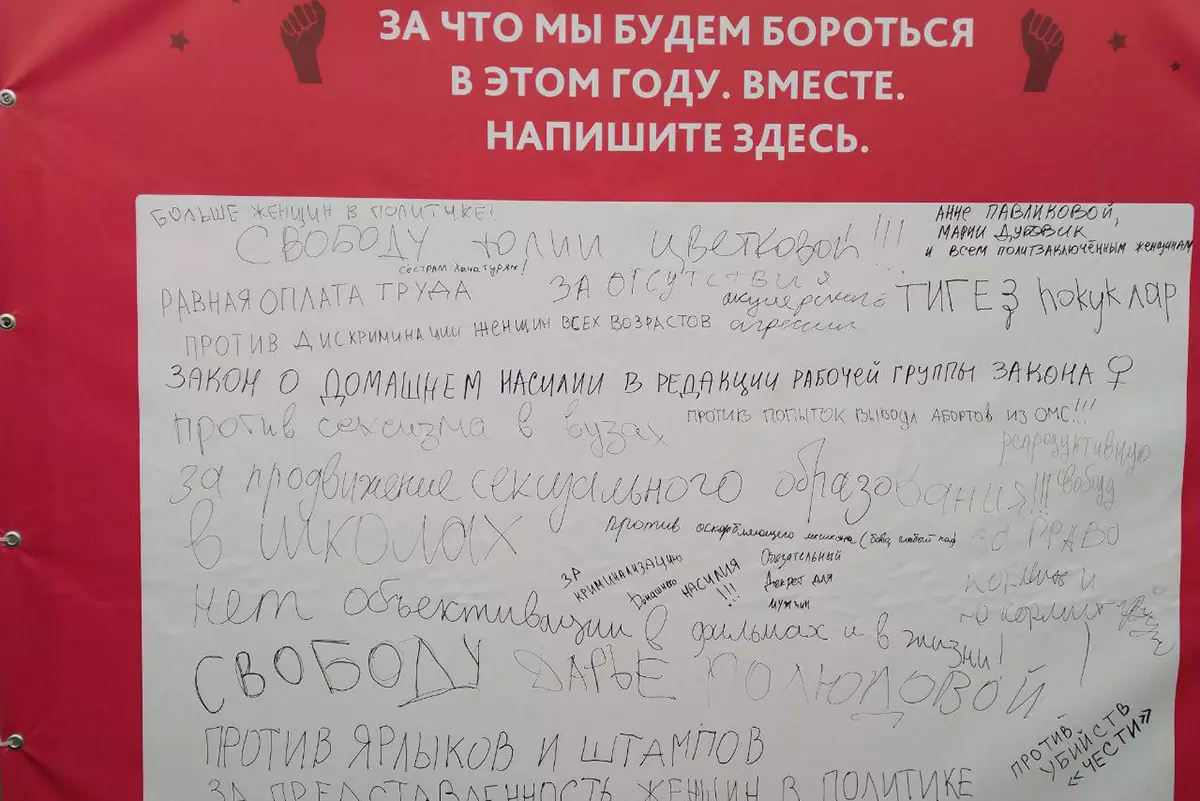 ЗА ЧТО МЫ БУДЕМ БОРОТЬСЯ
В ЭТОМ ГОДУ. ВМЕСТЕ.
НАПИШИТЕ ЗДЕСЬ.
БОЛЬШЕ ЖЕНЩИН В ПОЛИТИКЕ!
СВОБОДУ ЮЛИИ ЦВЕТКОВОЙ!!!
АННЕ ПАВЛИКОВОЙ,
МАРИИ ДУБОВИК
И ВСЕМ ПОЛИТЗАКЛЮЧЁННЫМ ЖЕНЩИНАМ
СЁСТРАМ ХАЧАТУРЯН!
РАВНАЯ ОПЛАТА ТРУДА
ЗА ОТСУТСТВИЯ
акушерского
агрессии
ТИГЕҘ ҺОКУКЛАР
ПРОТИВ ДИСКРИМИНАЦИИ ЖЕНЩИН ВСЕХ ВОЗРАСТОВ
ЗАКОН О ДОМАШНЕМ НАСИЛИИ В РЕДАКЦИИ РАБОЧЕЙ ГРУППЫ ЗАКОНА ♀
против сексизма в вузах
ПРОТИВ ПОПЫТОК ВЫВОДА АБОРТОВ ИЗ ОМС!!!
репродуктивную
свободу
за продвижение сексуального образования!!!
в школах
против оскорбляющего
за ПРАВО
кормить и
не кормить
ЗА
КРИМИНАЛИЗАЦИЮ
Домашнего НАСИЛИЯ
!!!
Обязательный
Декрет для
мужчин
нет объективации в фильмах и в жизни!
СВОБОДУ ДАРЬЕ ПОЛЮДОВОЙ
ПРОТИВ ЯРЛЫКОВ И ШТАМПОВ
ПРОТИВ
УБИЙСТВ
«ЧЕСТИ»
ЗА ПРЕДСТАВЛЕННОСТЬ ЖЕНЩИН В ПОЛИТИКЕ